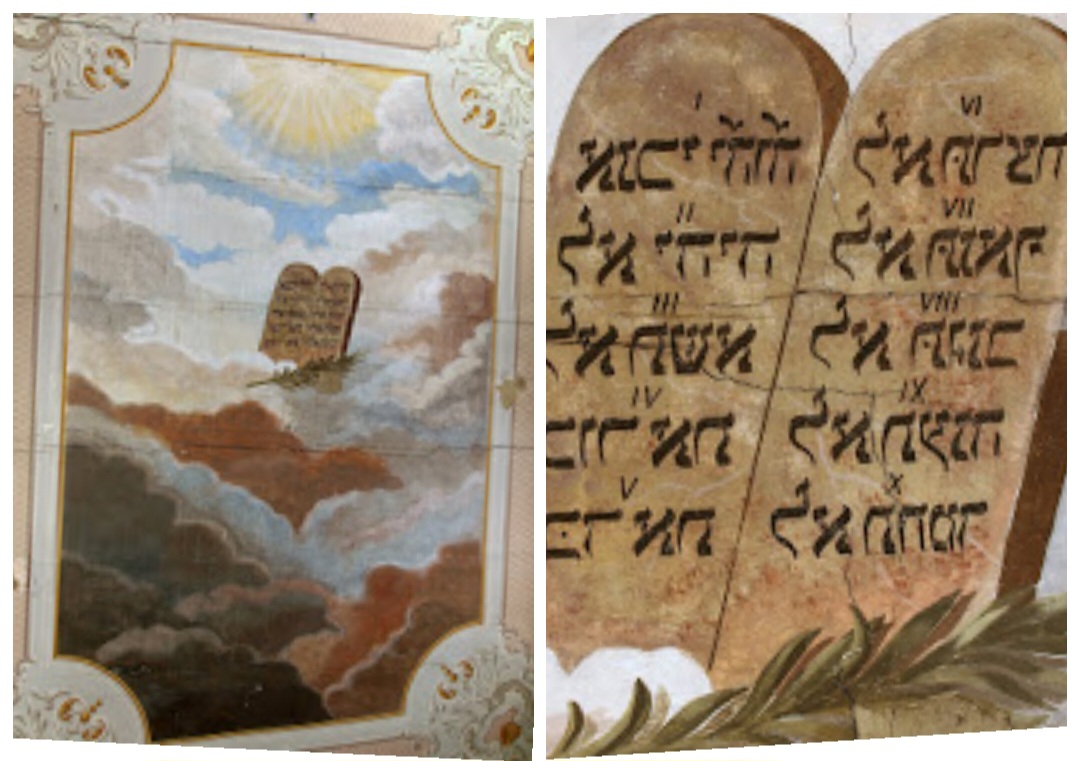 I
אנוכי יהוה
II
לא יהיה
III
לא תשא
IV
זכור את
V
כבד את
VI
לא תרצח
VII
לא תנאף
VIII
לא תגנב
IX
לא תענה
X
לא תחמד